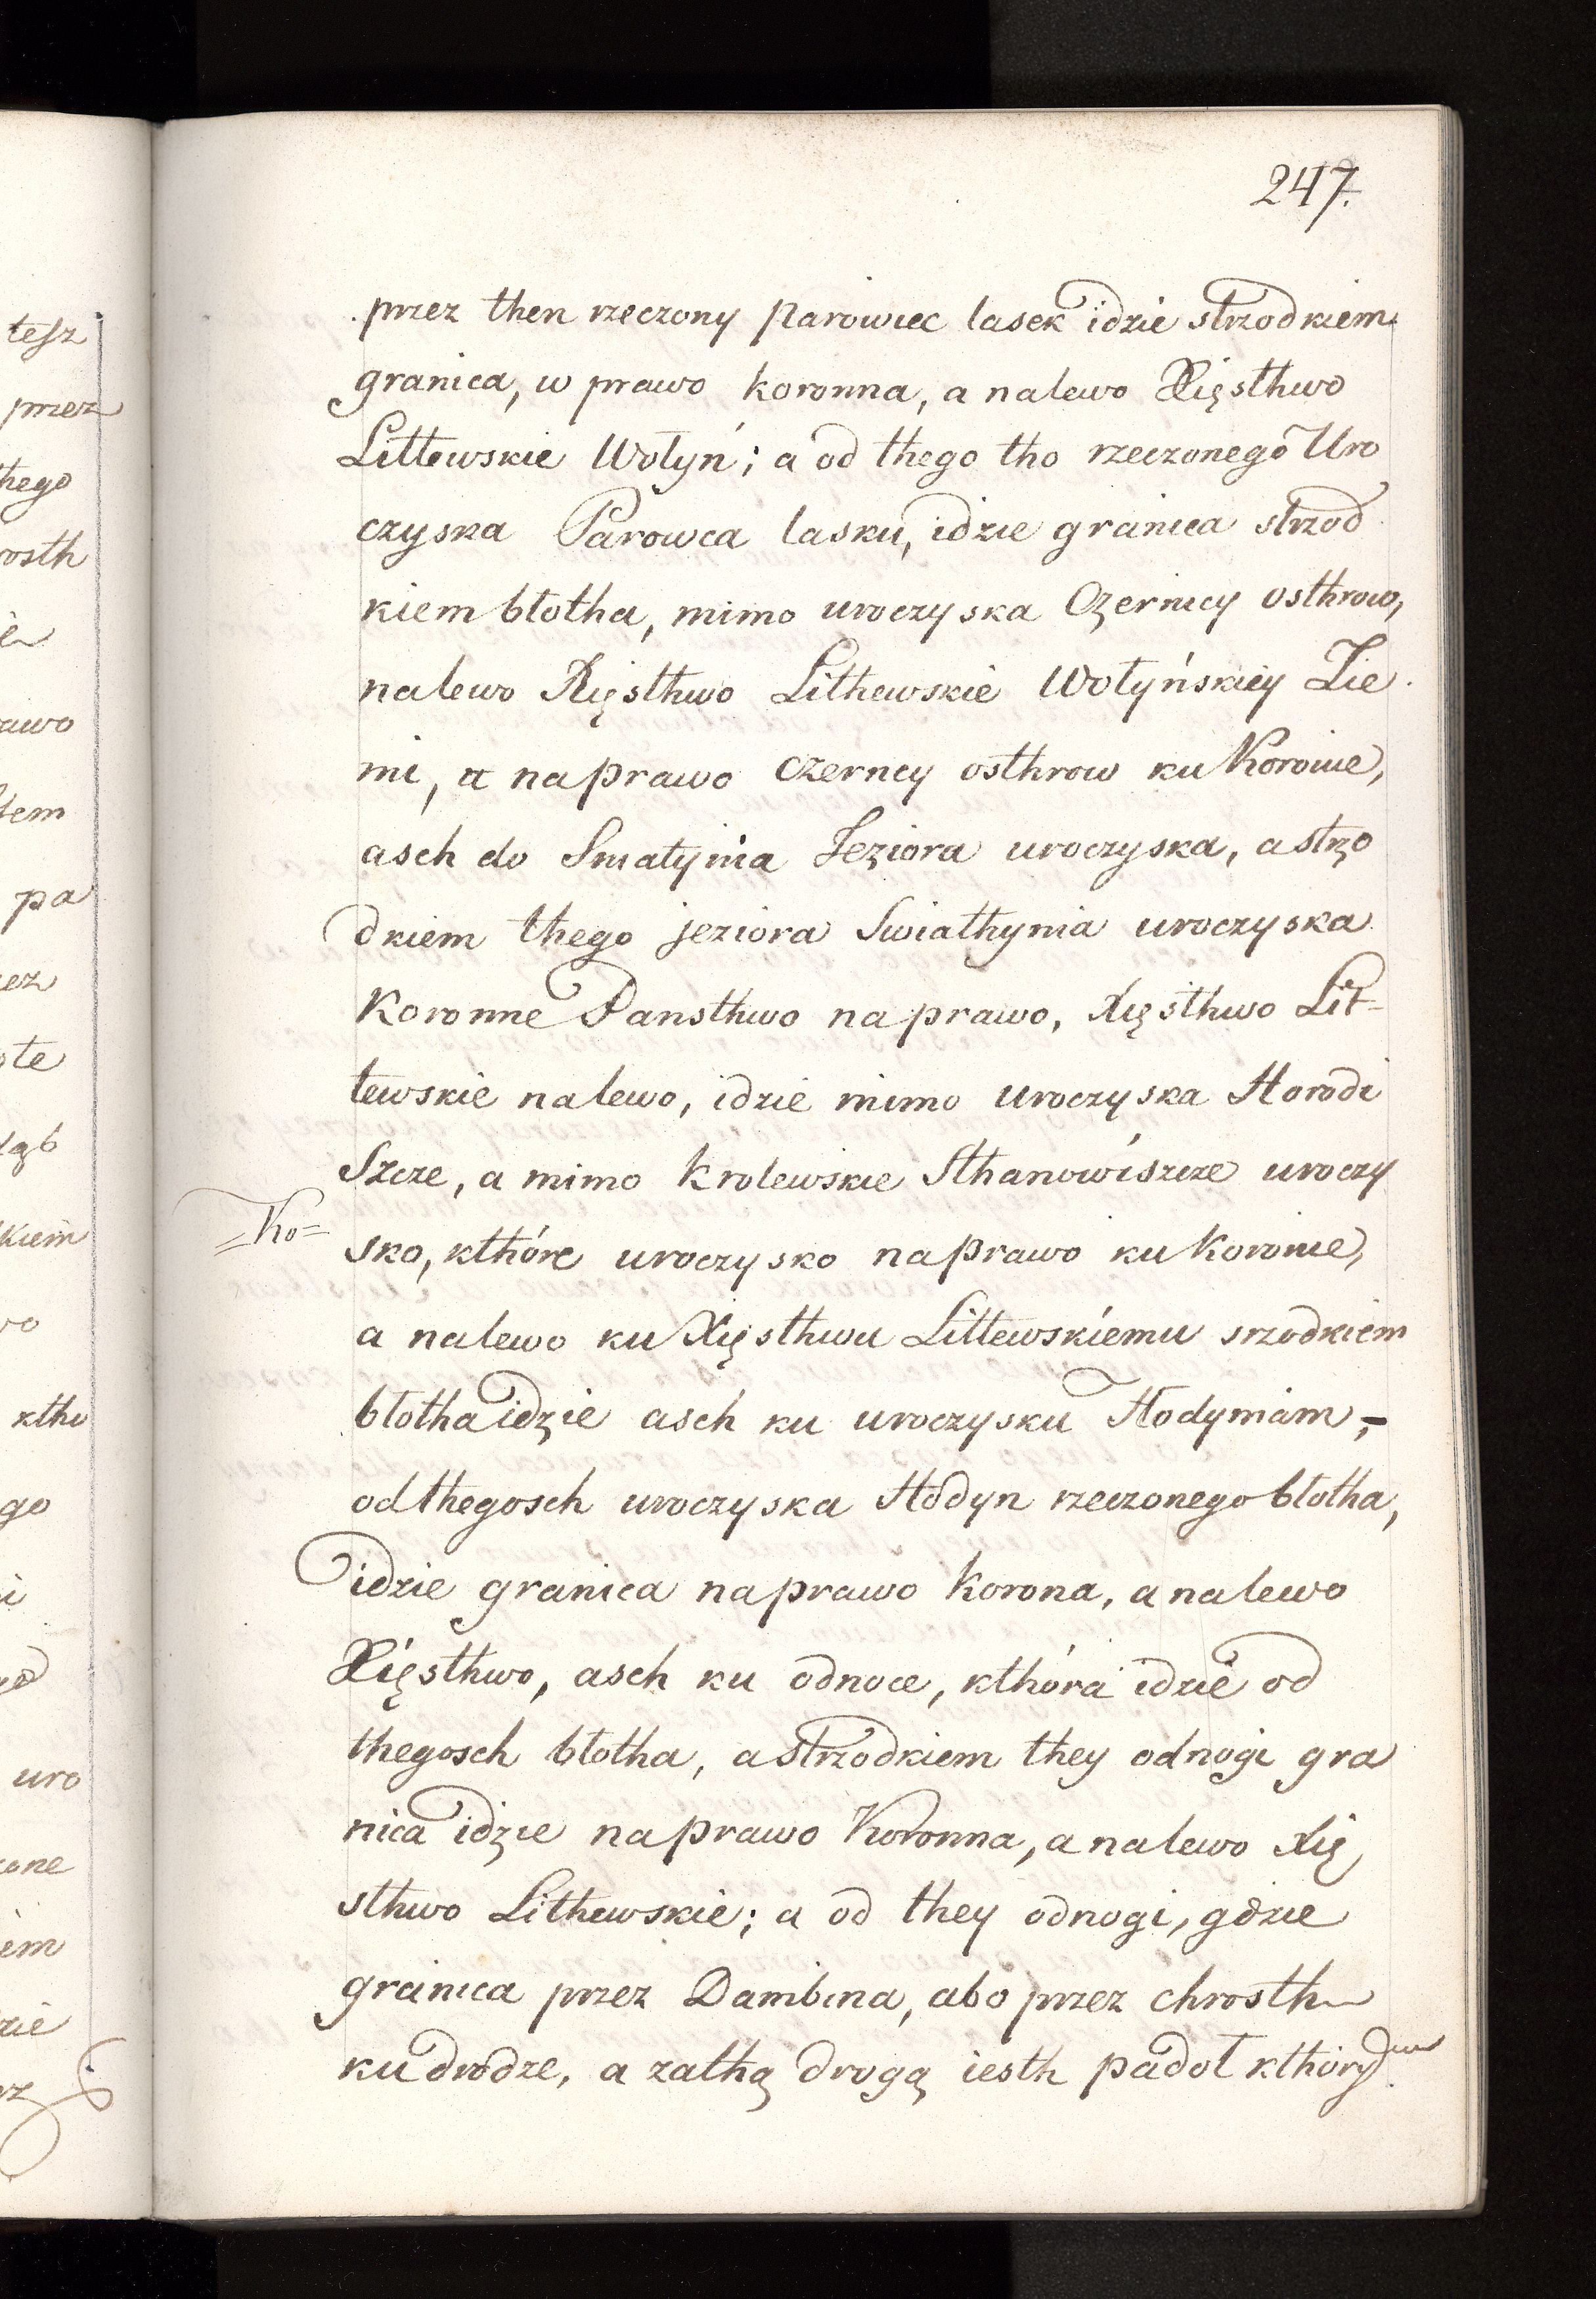 247.
przez then rzeczony parowiec lasek idzie strzodkiem
granica, w prawo koronna, a nalewo Xięsthwo
Littewskie Wołyń; a od thego tho rzeczonego Uro
czyska Parowca lasku, idzie granica strzod
kiem błotha, mimo uroczyska Czernicy osthrow,
nalewo Xięsthwo Lithewskie Wołyńskiey Zie
mi, a naprawo czerncy osthrow ku Koronie,
asch do Smatynia Jeziora uroczyska, a strzo
dkiem thego jeziora Swiathynia uroczyska
Koronne Pansthwo naprawo, Xięsthwo Lit-
tewskie nalewo, idzie mimo uroczyska Horodi
Szcze, a mimo krolewskie Sthanowiszcze uroczy
=Ko=
sko, kthóre uroczysko naprawo ku koronie,
a nalewo ku Xięsthwu Littewskiemu srzodkiem
błotha idzie asch ku uroczysku Hodyniam,-
od thegosch uroczyska Hodyn rzeczonego błotha,
idzie granica naprawo korona, a nalewo
Xięsthwo, asch ku odnoce, kthóra idzie od
thegosch błotha, a strzodkiem they odnogi gra
nica idzie naprawo Koronna, a nalewo Xię
sthwo Lithewskie; a od they odnogi, gdzie
granica przez Dambina, abo przez chrosth
ku drodze, a zathą drogą iesth padoł kthory
tesz
przez
thego
rosth
awo
tem
pa
ez
ote
kiem
ktho
go
uro
one
em
zie